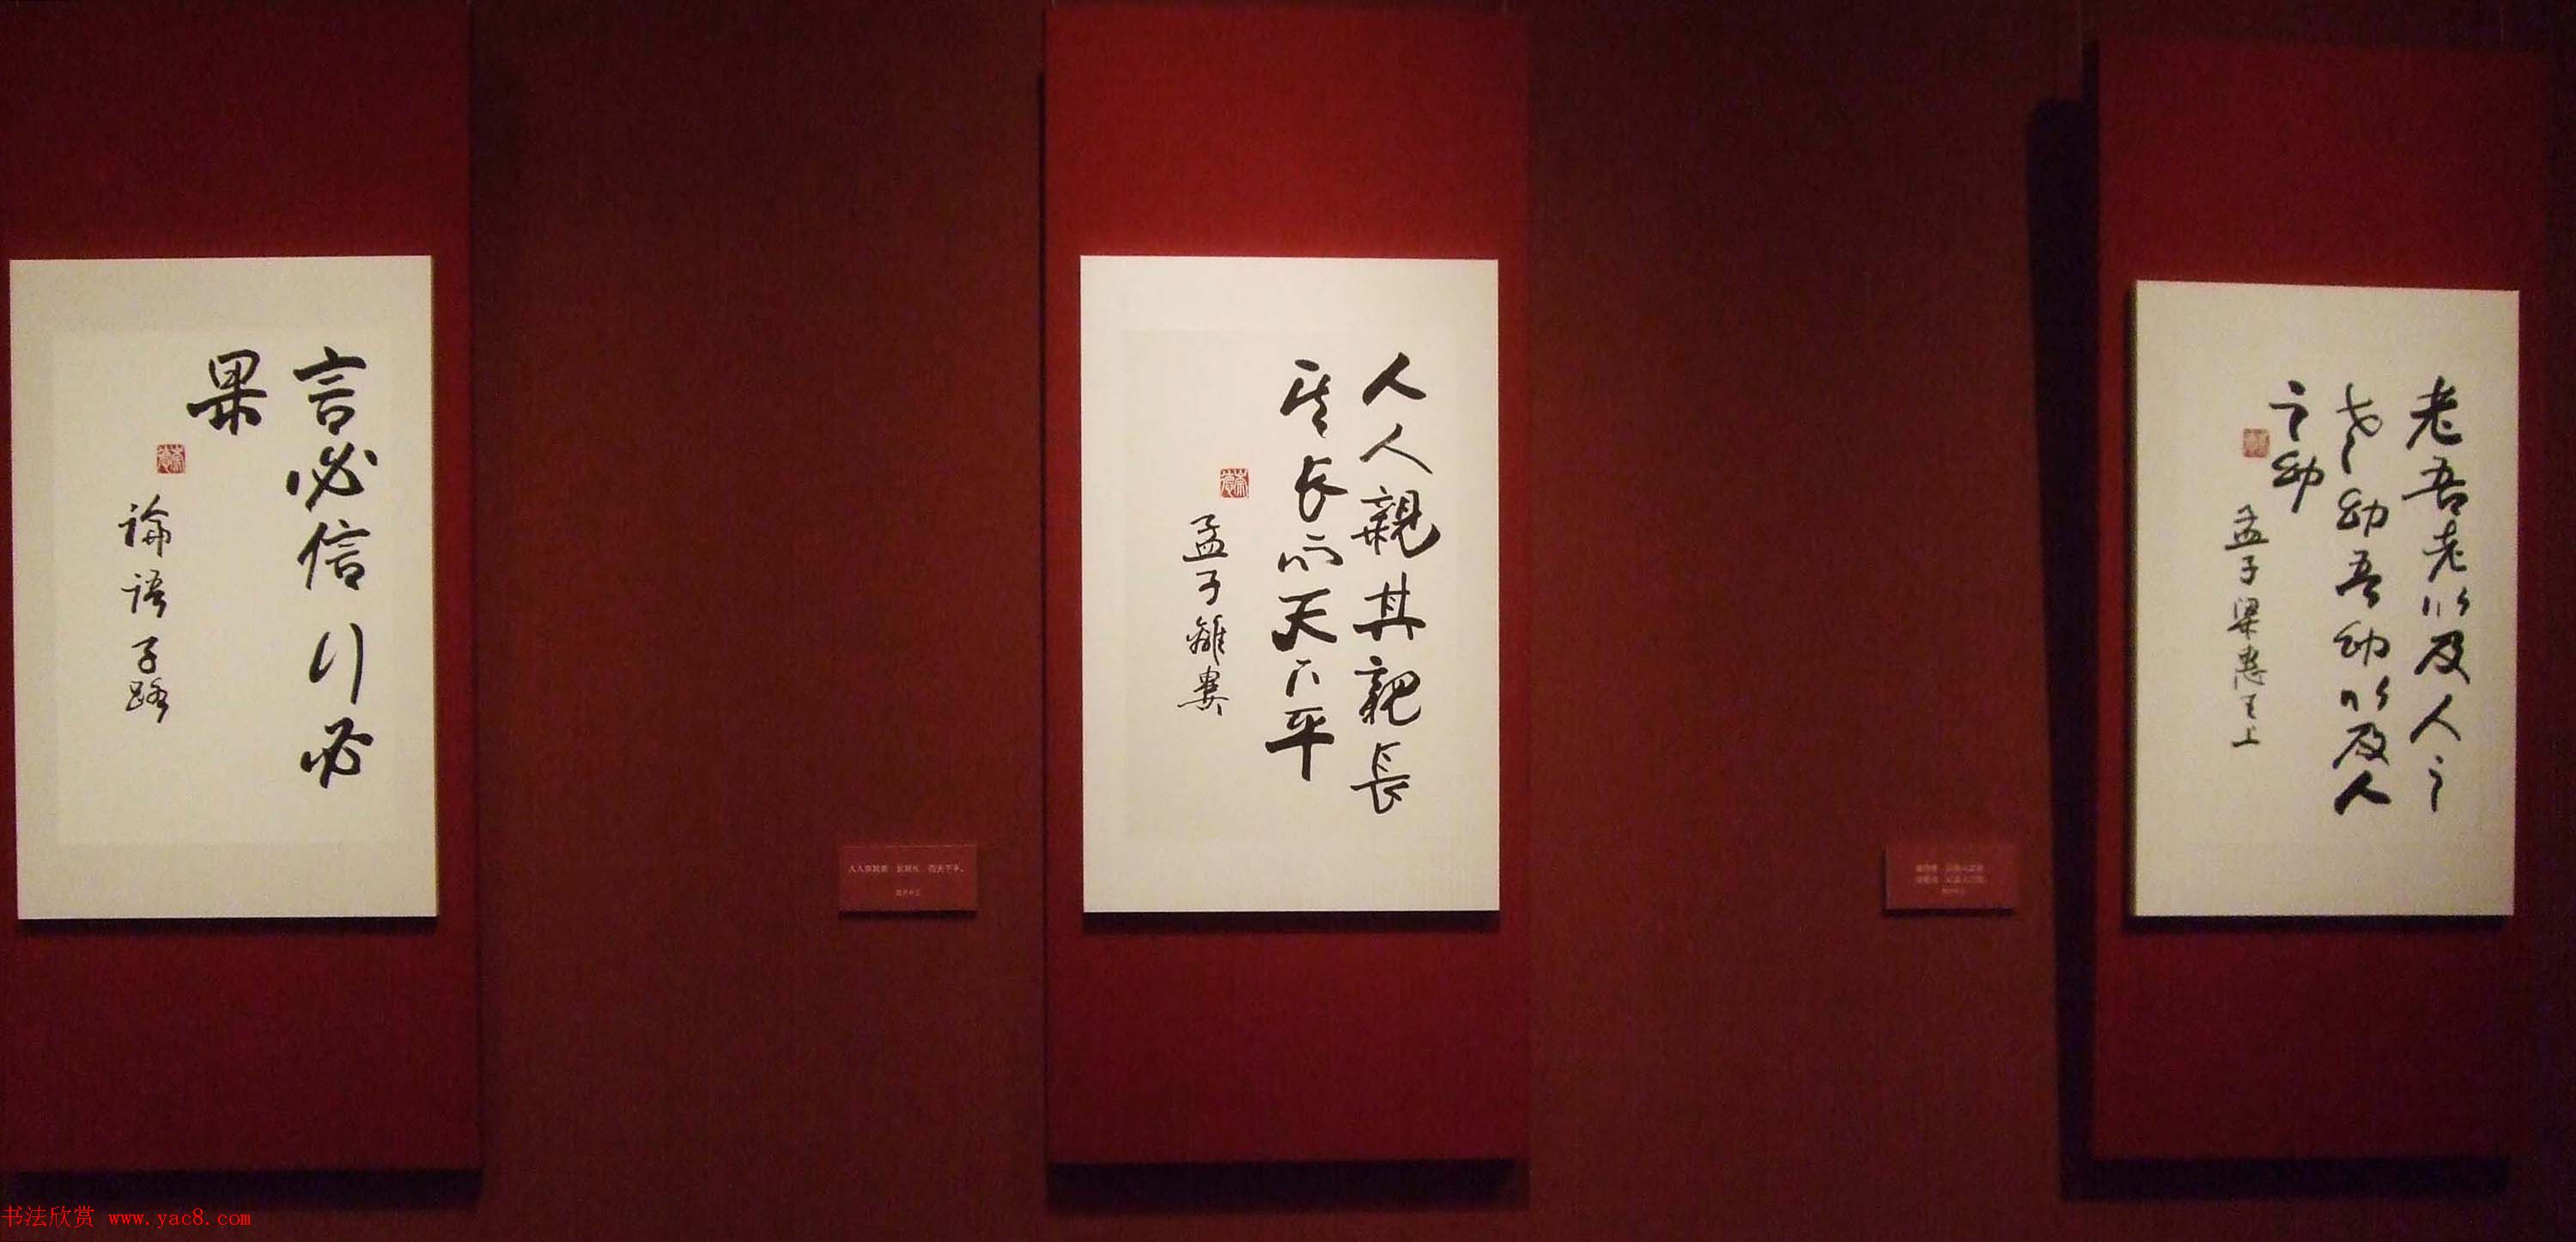 言必信行必
果
論語子路
人人親其親長
其長而天下平
孟子離婁
人人亲其亲 长其长 而天下平。
老吾老以及人之
老幼吾幼以及人
之幼
孟子梁惠王上
书法欣赏 www.yac8.com